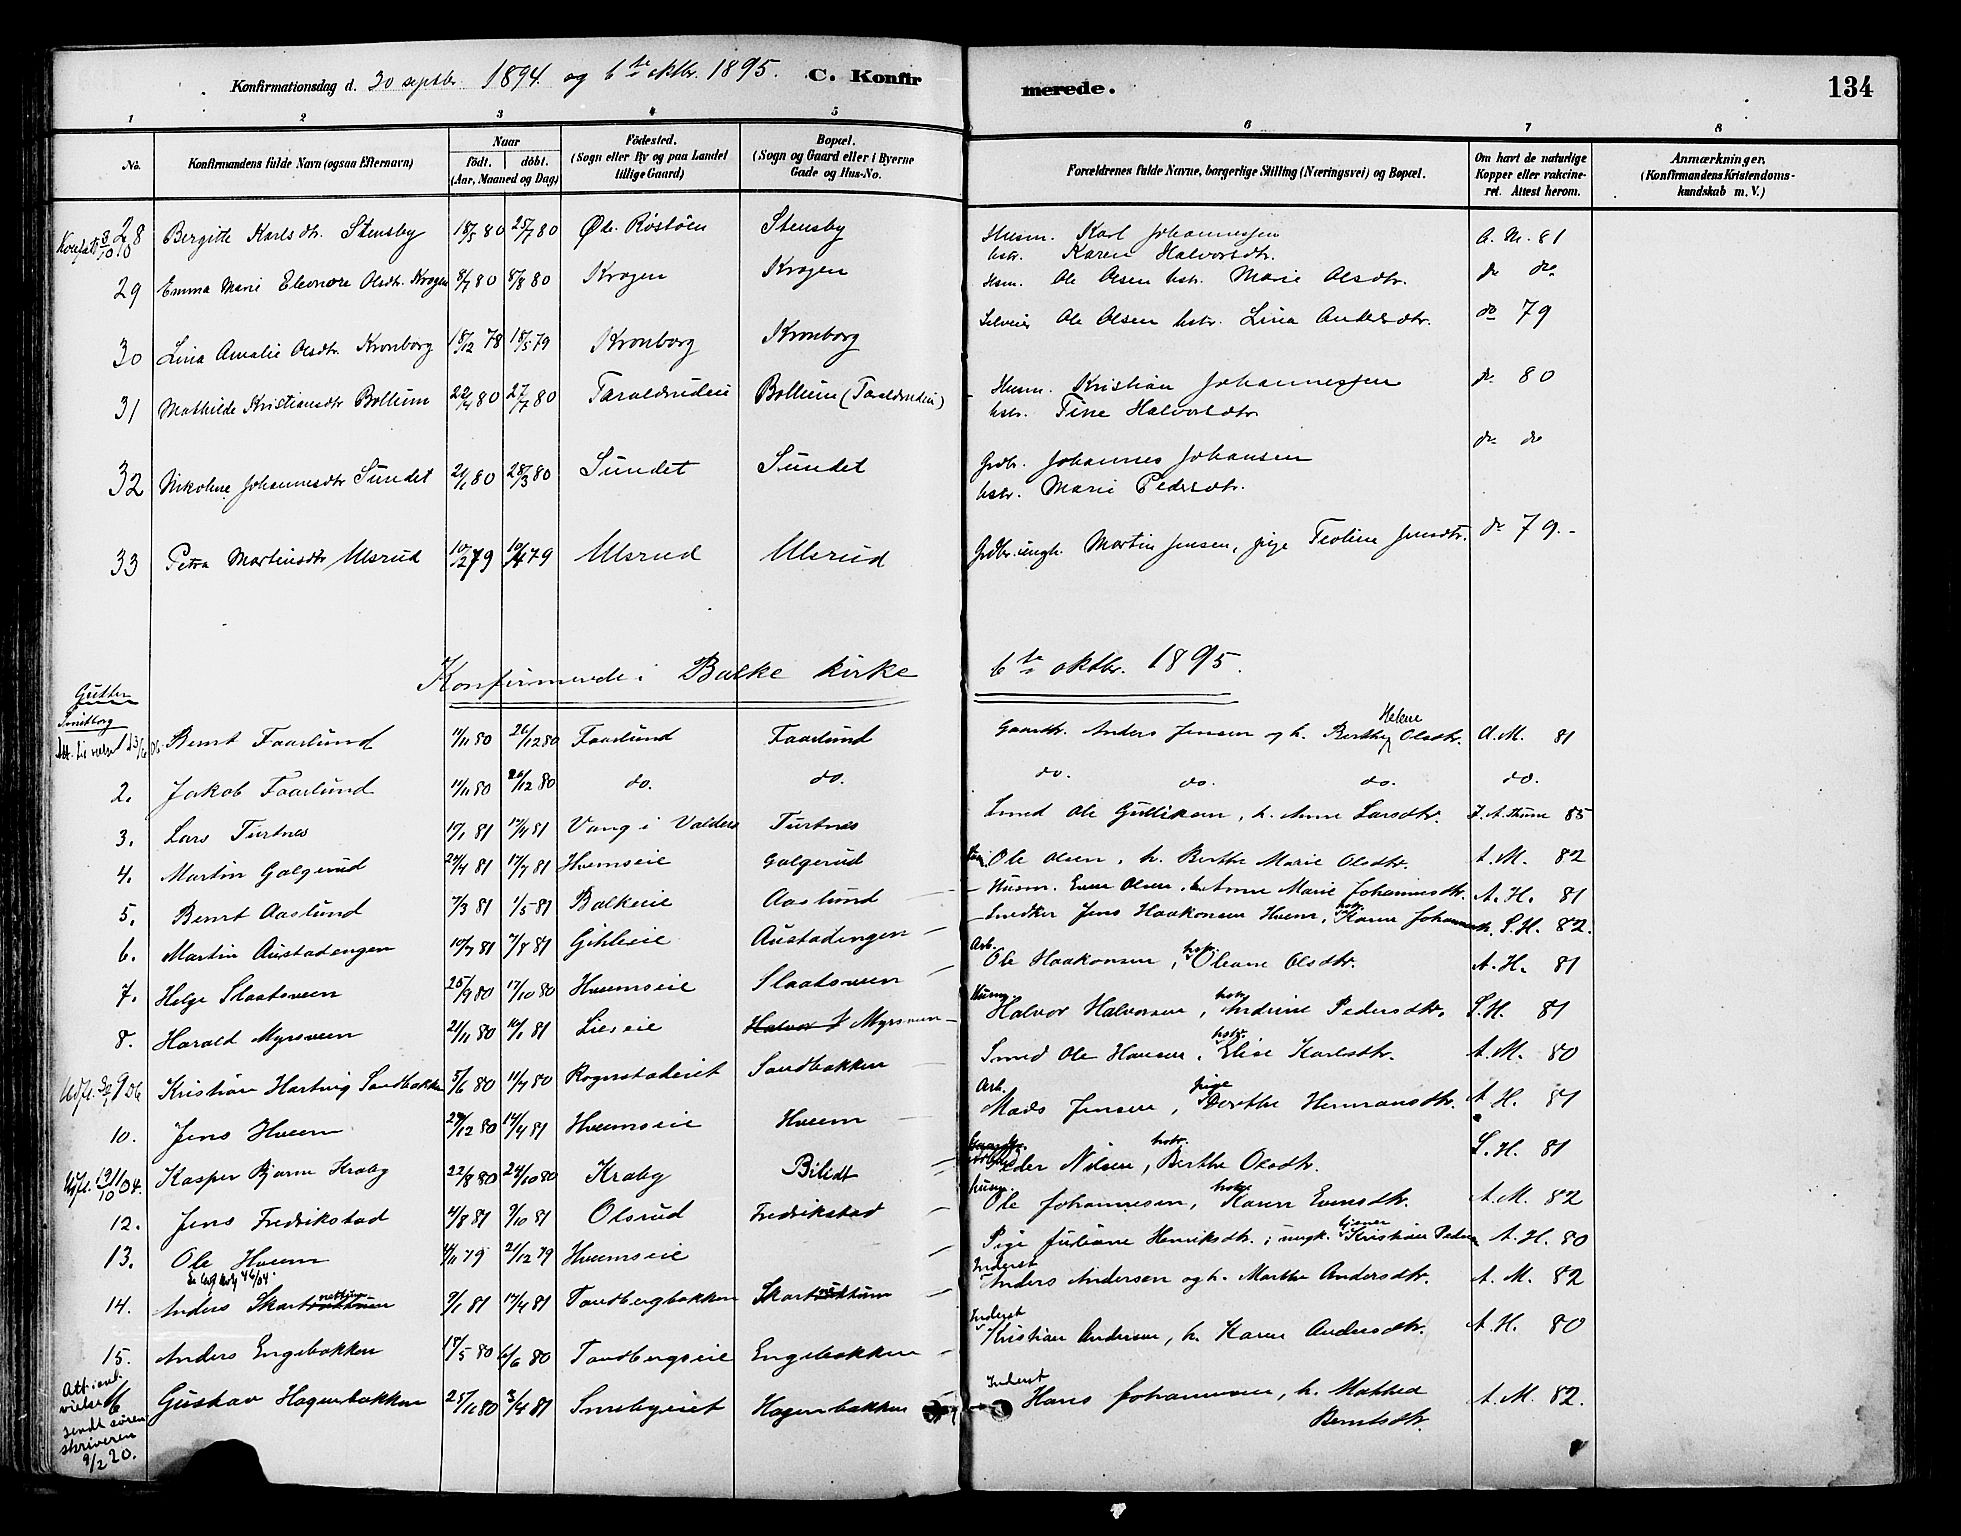 Konfirmationsdag d. 30 septbr. 1894 og 6te oktbr. 1895. C. Konfir merede. 134
1 2 3 4 5 6 7 8
No. Konfirmandens fulde Navn (ogsaa Efternavn) Naar födt. döbt. (Aar, Maaned og Dag) Födested. (Sogn eller By og paa Landet tillige Gaard) Bopæl. (Sogn og Gaard eller i Byerne Gade og Hus-No. Forældrenes fulde Navne, borgerlige Stilling (Næringsvei) og Bopæl. Om havt de naturlige Kopper eller vakcineret. Attest herom. Anmærkninger. (Konfirmandens Kristendomskundskab m. V.)
28 Bergitte Karlsdtr. Stensby 18/5 80 25/7 80 Øl. Röstöen Stensby Husm. Karl Johannessen A. M. 81
hstr. Karen Halvorsdtr.
29 Emma Marie Eleonore Olsdtr. Krogen 8/7 80 8/8 80 Krogen Krogen Husm. Ole Olsen hstr. Marie Olsdtr. do do
30 Lina Amalie Olsdtr. Kronborg 18/12 78 18/5 79 Kronborg Kronborg Selveier Ole Olsen hstr. Lina Andersdtr. do 79
31 Mathilde Kristiansdtr Bollum 22/4 80 27/7 80 Taraldsrudeie Bollum (Taraldsrudeie) Husm. Kristian Johannessen do 80
hstr. Tine Halvorsdtr.
32 Nikoline Johannesdtr Sundet 21/1 80 28/3 80 Sundet Sundet Grdbr. Johannes Johansen do do
hstr. Marie Pedersdtr.
33 Petra Martinsdtr Ulsrud 10/2 79 10/4 79 Ulsrud Ulsrud Grdbr. ungk. Martin Jensen, pige Teoline Jensdtr. do 79.-
Konfirmerede i Balke kirke 6te oktbr. 1895.
Gutter
Bernt Faarlund 11/11 80 26/12 80 Faarlund Faarlund Gaardbr. Anders Jensen og h. Berthe Helene Olsdtr. A.M. 81
2. Jakob Faarlund 11/11 80 26/12 80 do. do. do. do. do. do.
3. Lars Turtnes 17/1 81 17/4 81 Vang i Valders Turtnes Smed Ole Gulliksen, h. Anne Larsdtr. 85
4. Martin Galgerud 24/4 81 17/7 81 Hvemseie Galgerud Ole Olsen, h. Berthe Marie Olsdtr. A.M. 82
5. Bernt Aaslund 7/3 81 1/5 81 Balkeie Aaslund Husm. Even Olsen, h. Anne Marie Johannesdtr. A.H. 81
6. Martin Austadengen 10/7 81 7/8 81 Gihleeie Austadengen Snedker Jens Haakonsen Hvem, hstr. Karen S.H. 82.
7. Helge Slaatsveen 25/9 80 17/10 80 Hveemseie Slaatsveen Arb. Ole Haakonsen, hstr. Oleane Olsdtr. A.H. 81
8. Harald Myrsveen 21/11 80 16/1 81 Lieseie Myrsveen Husm. Halvor Halvorsen, hstr. Andrine Pedersdtr. S.H. 81
Kristian Hartvig Sandbakken 5/6 80 11/7 80 Rognstadeiet Sandbakken Smed Ole Hansen, hstr. Elise Karlsdtr. A.M. 80
10. Jens Hveem 29/12 80 14/4 81 Hveemseie Hveem Arb. Mads Jensen, pige Berthe Hermansdtr. A.H. 81
Kasper Bjarne Kraby 22/8 80 24/10 80 Kraby Bilidt Peder Nilsen, hstr. Berthe Olsdtr. S.H. 81
12. Jens Fredrikstad 4/8 81 9/10 81 Olsrud Fredrikstad Husm. Ole Johannesen, hstr. Karen Evensdtr. A.M. 82
13. Ole Hveem 4/11 79 21/12 79 Hveemseie Pige Juliane Henriksdtr. i ungk. Kristian A.H. 80
14. Anders Skartnettum 9/1 81 17/4 81 Tandbergbakken Skartnettum Inderst Anders Andersen og h. Marthe Andersdtr. A.M. 82
15. Anders Engebakken 18/5 80 6/6 80 Tandbergseie Engebakken Inderst Kristian Andersen, h. Karen Andersdtr. A.H. 80
16 Gustav Hagenbakken 25/11 80 3/4 81 Snesbyeiet Hagenbakken Inderst Hans Johannesen, h. Mathea A.M. 82.
Berntsdtr.
sendt sören
skriveren
9/2 20.